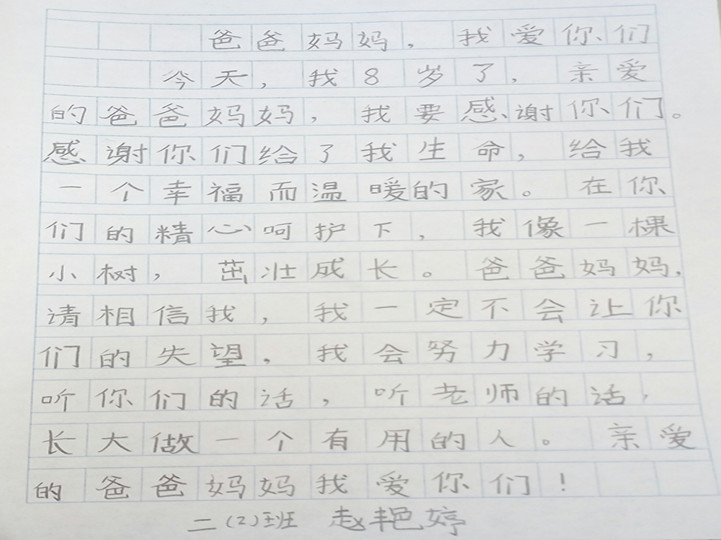 爸爸妈妈，我爱你们
今天，我8岁了，亲爱
的爸爸妈妈，我要感谢你们。
感谢你们给了我生命，给我
一个幸福而温暖的家。在你
们的精心呵护下，我像一棵
小树，茁壮成长。爸爸妈妈，
请相信我，我一定不会让你
们的失望。我会努力学习，
听你们的话，听老师的话，
长大做一个有用的人。亲爱
的爸爸妈妈我爱你们！
二（2）班 赵艳婷